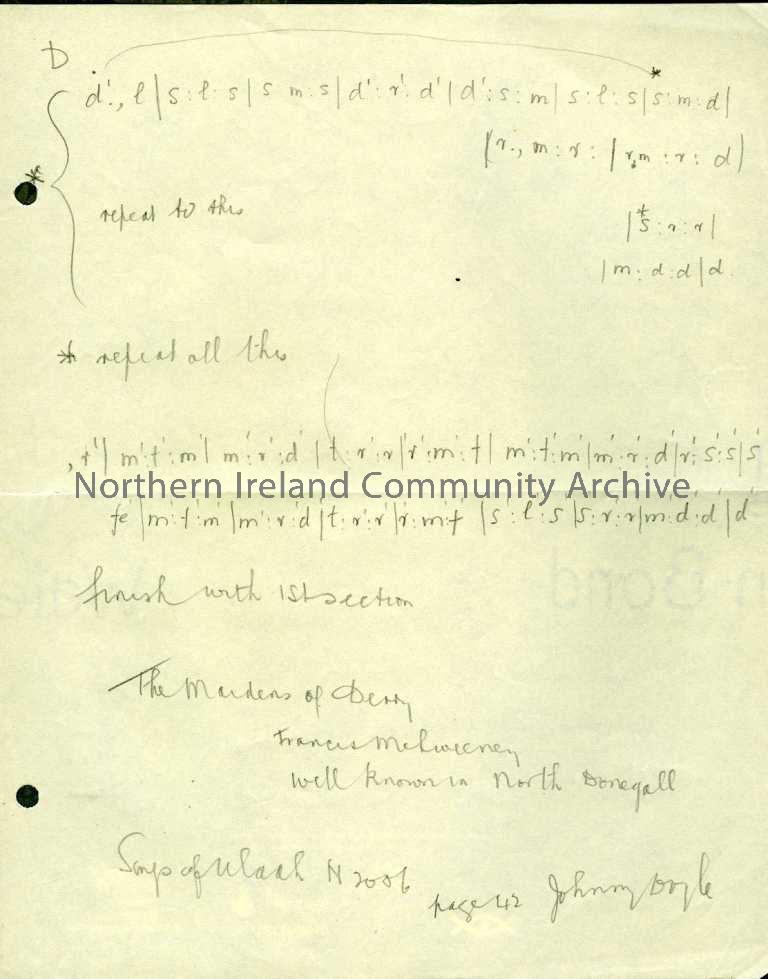 D
d'., l | s : l : s | s m : s | d' : r' : d' | d' : s : m | s : l : s | s : m : d |
( r ., m : r : | r,m : r : d )
* repeat to this
| *s : r : r |
| m : d : d | d.
* repeat all this
, r' | m' : t' : m' | m' : r' : d' | t : r' : r' | r' : m' : t | m' : t' : m' | m' : r' : d' | r' : s' : s' | s'
Northern Ireland Community Archive
fe | m' : f : m | m' : r' : d | t : r : r | r : m : f | s : l : s | s : r : r | m : d' : d' | d'
finish with 1st section
The Maidens of Derry
Francis McSweeney
Well known in North Donegall
Songs of Uladh H 2006
page 42 Johnny Doyle